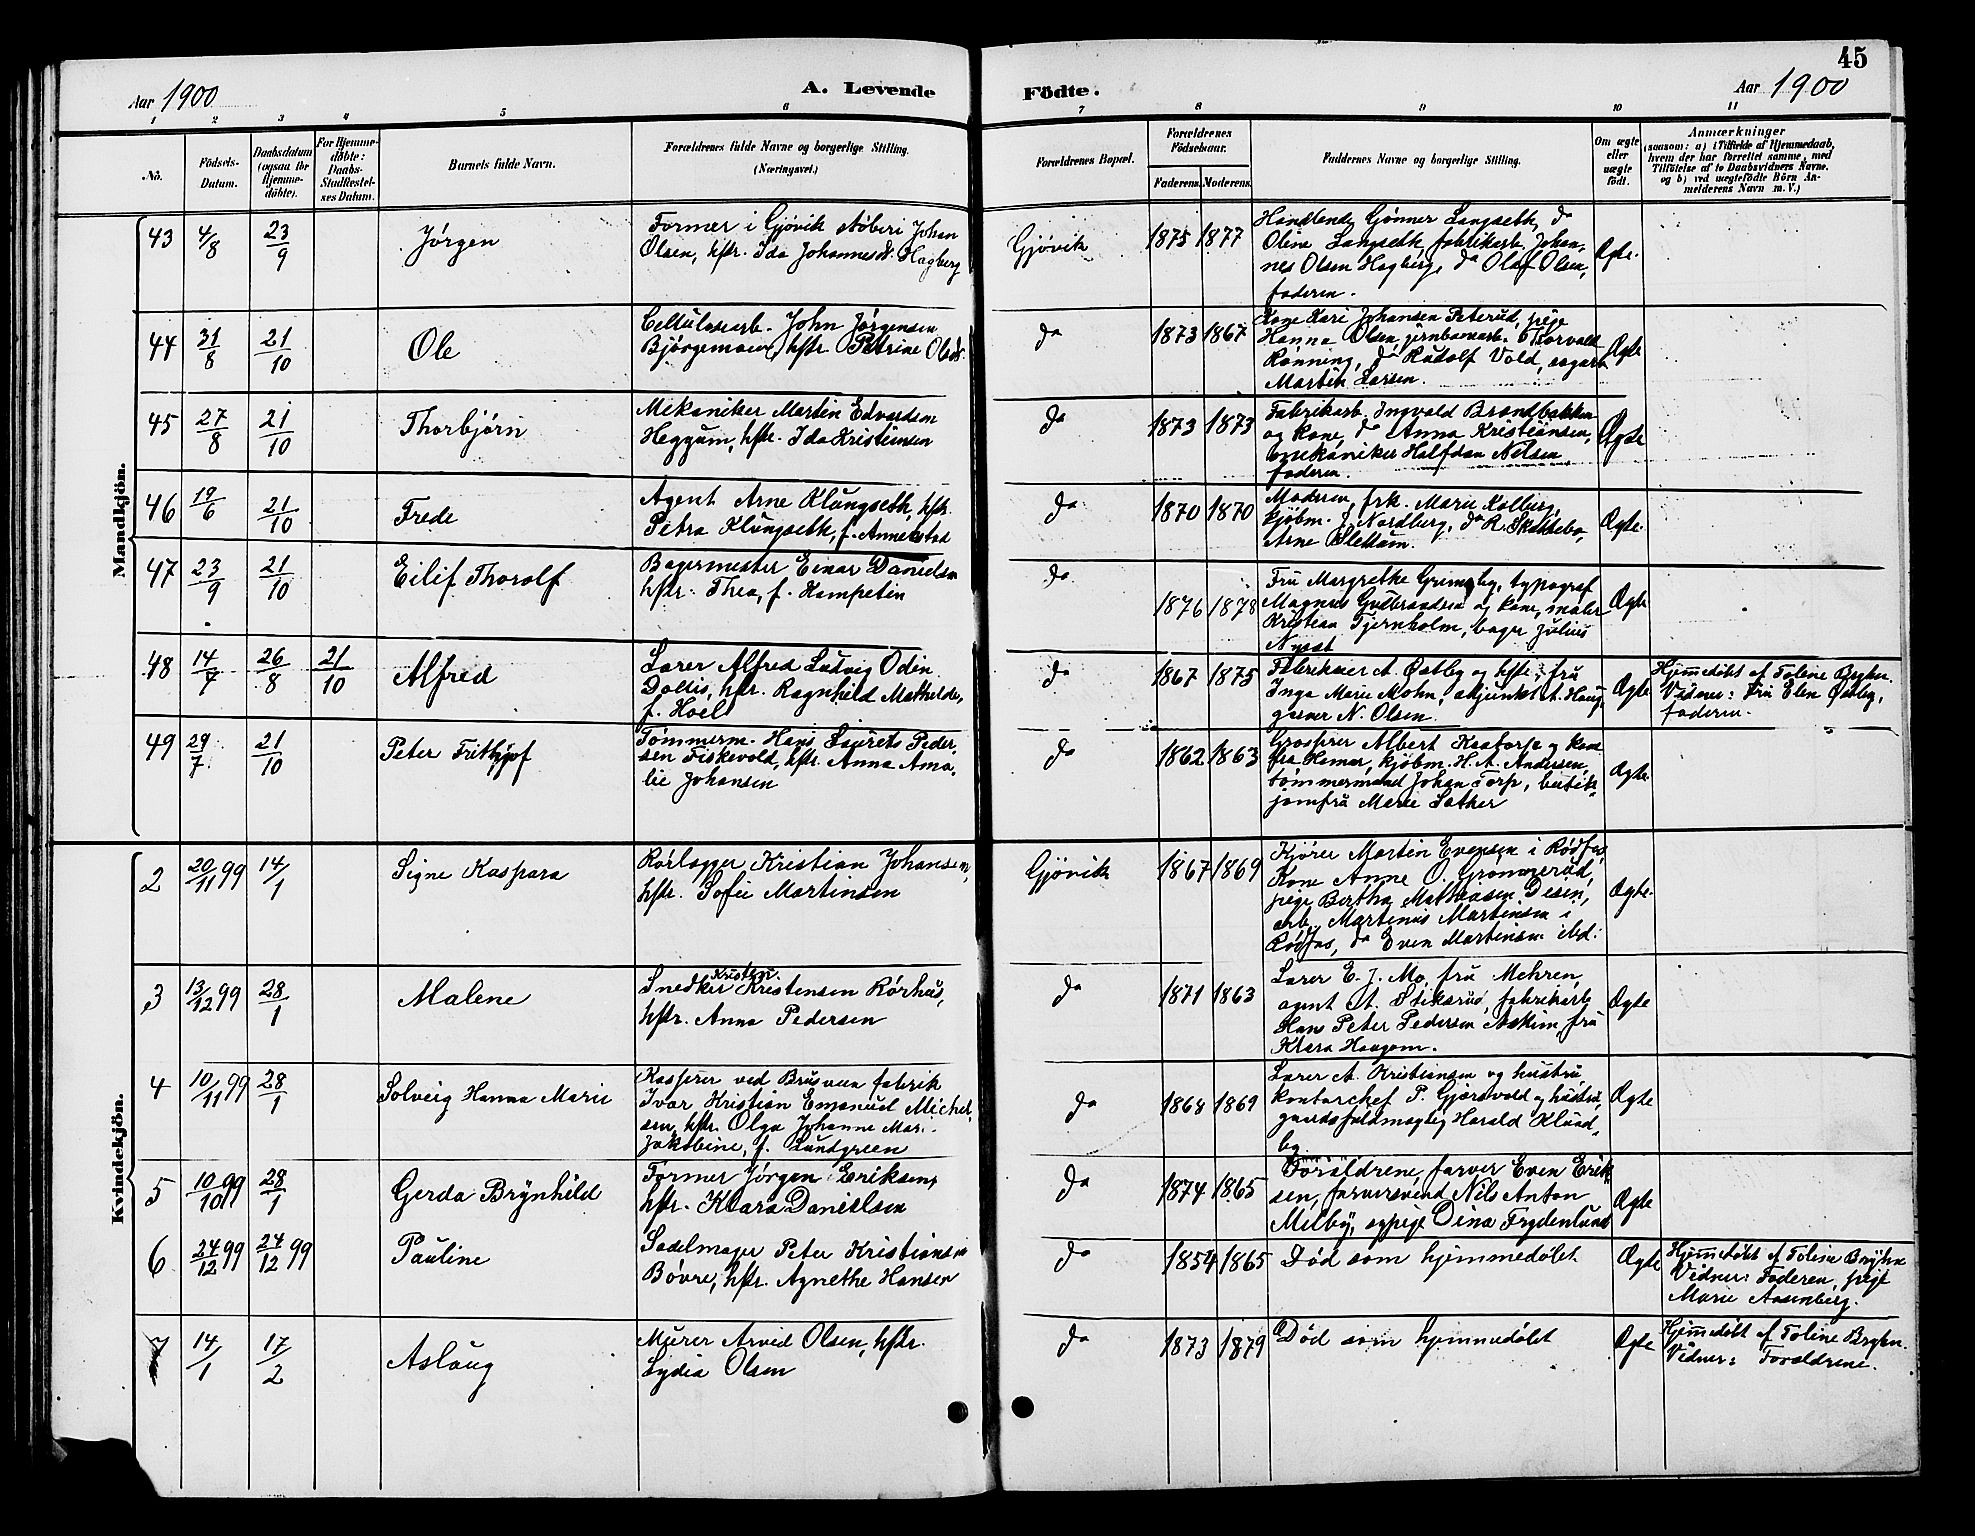 45
Aar 1900
A. Levende
Födte.
Aar 1900
1 2 3 4 5 6 7 8 9 10 11
No.
Födsels-
Datum.
Daabsdatum
(ogsaa for
Hjemme-
döbte).
For Hjemme-
döbte:
Daabs-
Stadfestel-
ses Datum.
Barnets fulde Navn.
Forældrenes fulde Navne og borgerlige Stilling.
(Næringsvei.)
Forældrenes Bopæl.
Forældrenes
Födselsaar.
Faderens. Moderens.
Faddernes Navne og borgerlige Stilling.
Om ægte
eller
uægte
födt.
Anmærkninger
(saasom: a) i Tilfælde af Hjemmedaab,
hvem der har forrettet samme, med
Tilföielse af to Daabsvidners Navne,
og b) ved uægtefödte Börn An-
melderens Navn m. V.)
Mandkjön.
43 4/8 23/9 Jørgen
Former i Gjøvik støberi Johan
Olsen, hstr. Ida Johannesd. Hagberg
Gjøvik 1875 1877
Handlende Gunner Langseth, do
Oline Langseth, fabrikarb. Johan-
nes Olsen Hagberg, do Olaf Olsen,
faderen.
Ægte.
44 31/8 21/10 Ole
Cellulosearb. John Jørgensen
Bjørgemoen, hstr. Petrine Olsdr.
do 1873 1867
Kone Kari Johansen Peterud, pige
Hanna Olsen, jernbanearb. Thorvald
Rønning, do Rudolf Vold, sagarb.
Martin Larsen.
Ægte
45 27/8 21/10 Thorbjørn
Mekaniker Martin Edvardsen
Heggum, hstr. Ida Kristiansen
do 1873 1873
Fabrikarb. Ingvald Brandbakken
og kone, do Anna Kristiansen,
mekaniker Halfdan Nilsen,
faderen.
Ægte
46 19/6 21/10 Frede
Agent Arne Klungseth, hstr.
Petra Klungseth, f. Annekstad
do 1870 1870
Moderen, frk. Marie Kolberg,
kjøbm. J. Nordberg, do R. Skattebo,
Arne Slettum.
Ægte.
47 23/9 21/10 Eilif Thorolf
Bagermester Einar Danielsen
hstr. Thea, f. Kampetin
do 1876 1878
Fru Margrethe Grimsby, typograf
Magnus Gulbrandsen og kone, maler
Kristian Tjernholm, bager Julius
Nysæt
Ægte
48 14/7 26/8 21/10 Alfred
Lærer Alfred Ludvig Odin
Dollis, hstr. Ragnhild Mathilde,
f. Hoel
do 1867 1875
Fabrikeier A. Østby og hstr., fru
Inga Marie Mohn, adjunkt A. Haug,
garver N. Olsen.
Ægte
Hjemmedøbt af Toline Bryhn.
Vidner: Fru Elen Østby,
faderen.
49 29/7 21/10 Peter Frithjof
Tømmerm. Hans Laurets Peder-
sen Fiskevold, hstr. Anna Ama-
lie Johansen
do 1862 1863
Grosserer Albert Kastorp og kone
fra Hamar, kjøbm. H. A. Andersen,
tømmermand Johan Torp, butik-
jomfru Marie Sæther
Ægte.
Kvindekjön.
2 20/11 99 14/1 Signe Kaspara
Rørlægger Kristian Johansen,
hstr. Sofie Martinsen
Gjøvik 1867 1869
Kjører Martin Evensen i Rødfos,
Kone Anne O. Grønnerud,
pige Bertha Mathiasen Desen,
arb. Martinus Martinsen i
Rødfos, do Even Martinsen ibd.
Ægte.
3 13/12 99 28/1 Malene
Snedker Kristen Kristensen Rørhus,
hstr. Anna Pedersen
do 1871 1863
Lærer E. J. Mo, fru Mehren,
agent A. Stiksrud, fabrikarb.
Hans Peter Pedersen Askim, fru
Klara Haugom.
Ægte
4 10/11 99 28/1 Solveig Hanna Marie
Kasserer ved Brusveen fabrik
Ivar Kristian Emanuel Michel-
sen, hstr. Olga Johanne Mari-
Jakobine, f. Lundgreen
do 1868 1869
Lærer A. Kristiansen og hustru,
kontorchef P. Gjørsvold og hustru,
gaardsfuldmægtig Harald Klund-
by
Ægte
5 10/10 99 28/1 Gerda Brynhild
Former Jørgen Eriksen,
hstr. Klara Danielsen
do 1874 1865
Forældrene, farver Even Erik-
sen, farversvend Nils Anton
Milby, sypige Dina Frydenlund
Ægte
6 24/12 99 24/12 99 Pauline
Sadelmager Peter Kristiansen
Bøvre, hstr. Agnethe Hansen
do 1854 1865
Død som hjemmedøbt
Ægte
Hjemmedøbt af Toline Bryhn
Vidner: Faderen, pige
Marie Aasenberg.
7 14/1 17/2 Aslaug
Murer Arvid Olsen, hstr.
Lydia Olsen
do 1873 1879
Død som hjemmedøbt
Ægte
Hjemmedøbt af Toline Bryhn.
Vidner: Forældrene.